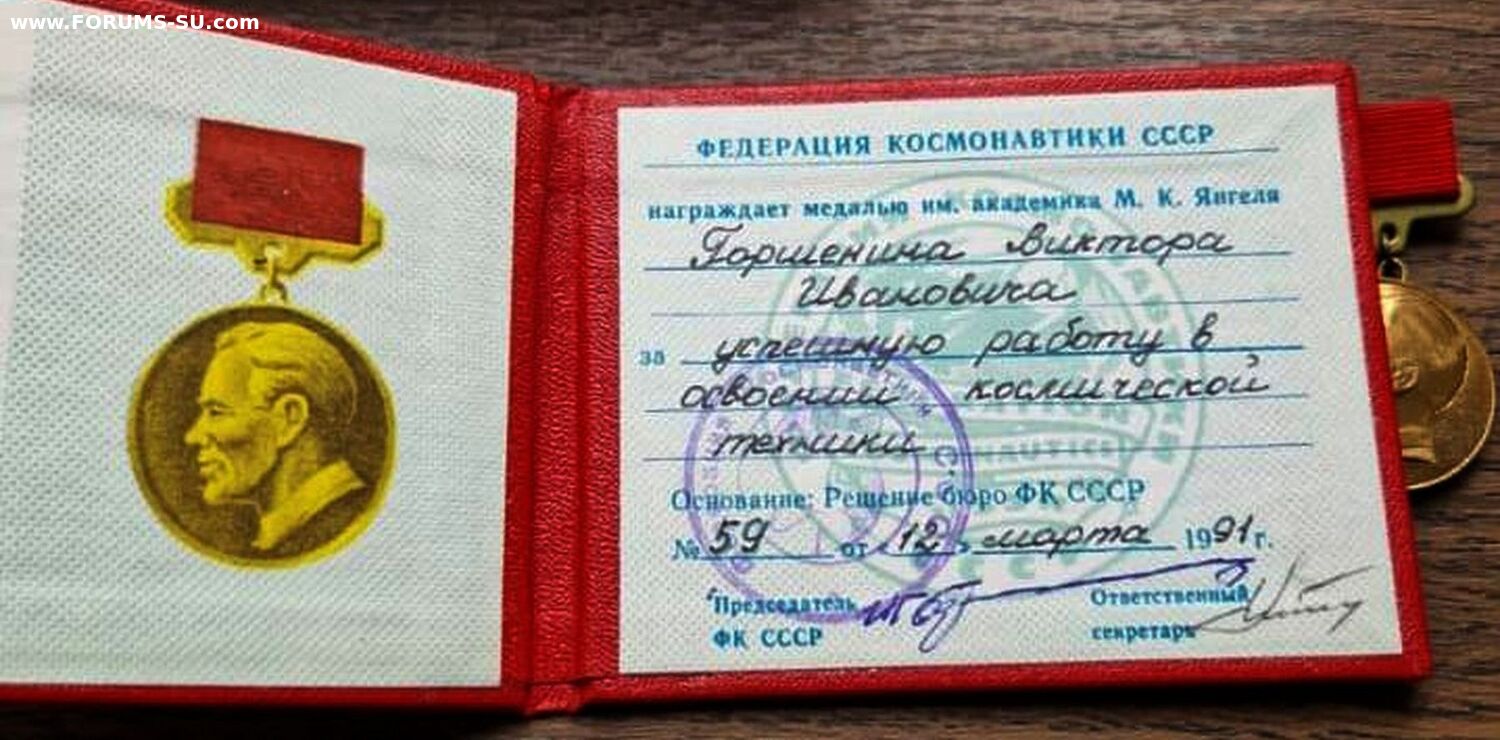 www.FORUMS-SU.com
ФЕДЕРАЦИЯ КОСМОНАВТИКИ СССР
награждает медалью им. академика М. К. Янгеля
Горшенина Виктора
Ивановича
за успешную работу в
освоении космической
техники
Основание: Решение бюро ФК СССР
№ 59 от «12» марта 1991 г.
Председатель
ФК СССР
Ответственный
секретарь